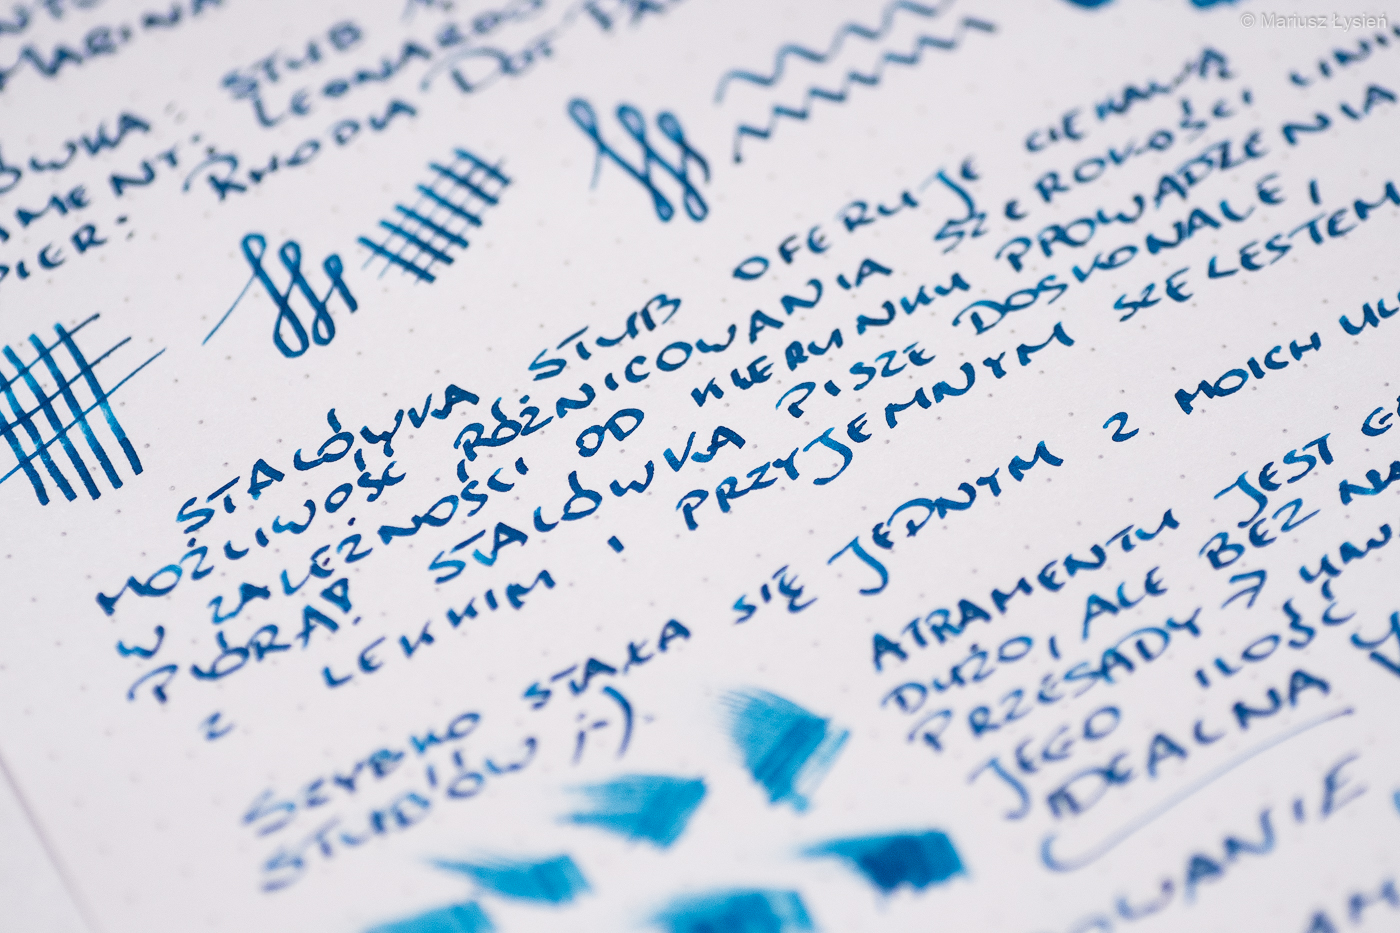 © Mariusz Łysień
MARINA
ÓWKA: STUB
AMENT: LEONARDO
PIER: RHODIA DOT
STALÓWKA STUB OFERUJE CIEKAWĄ
MOŻLIWOŚĆ RÓŻNICOWANIA SZEROKOŚCI LINII
W ZALEŻNOŚCI OD KIERUNKU PROWADZENIA
PIÓRA! STALÓWKA PISZE DOSKONALE I
Z LEKKIM I PRZYJEMNYM SZELESTEM
SZYBKO STAŁA SIĘ JEDNYM Z MOICH UL
STUBÓW ;-)
ATRAMENTU JEST
DUŻO, ALE BEZ
PRZESADY →
JEGO ILOŚĆ
IDEALNA
OWANIE